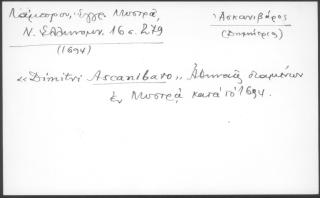 Λάμπρου, Ἔγγρ. Μυστρᾶ,
Ν. Ἑλληνομν. 16 σ. 279
(1694)
Ἀσκανιβάρος
(Δημήτριος)
«Dimitri Ascanibaro», Ἀθηναῖος διαμένων
ἐν Μυστρᾷ κατὰ τὸ 1694.